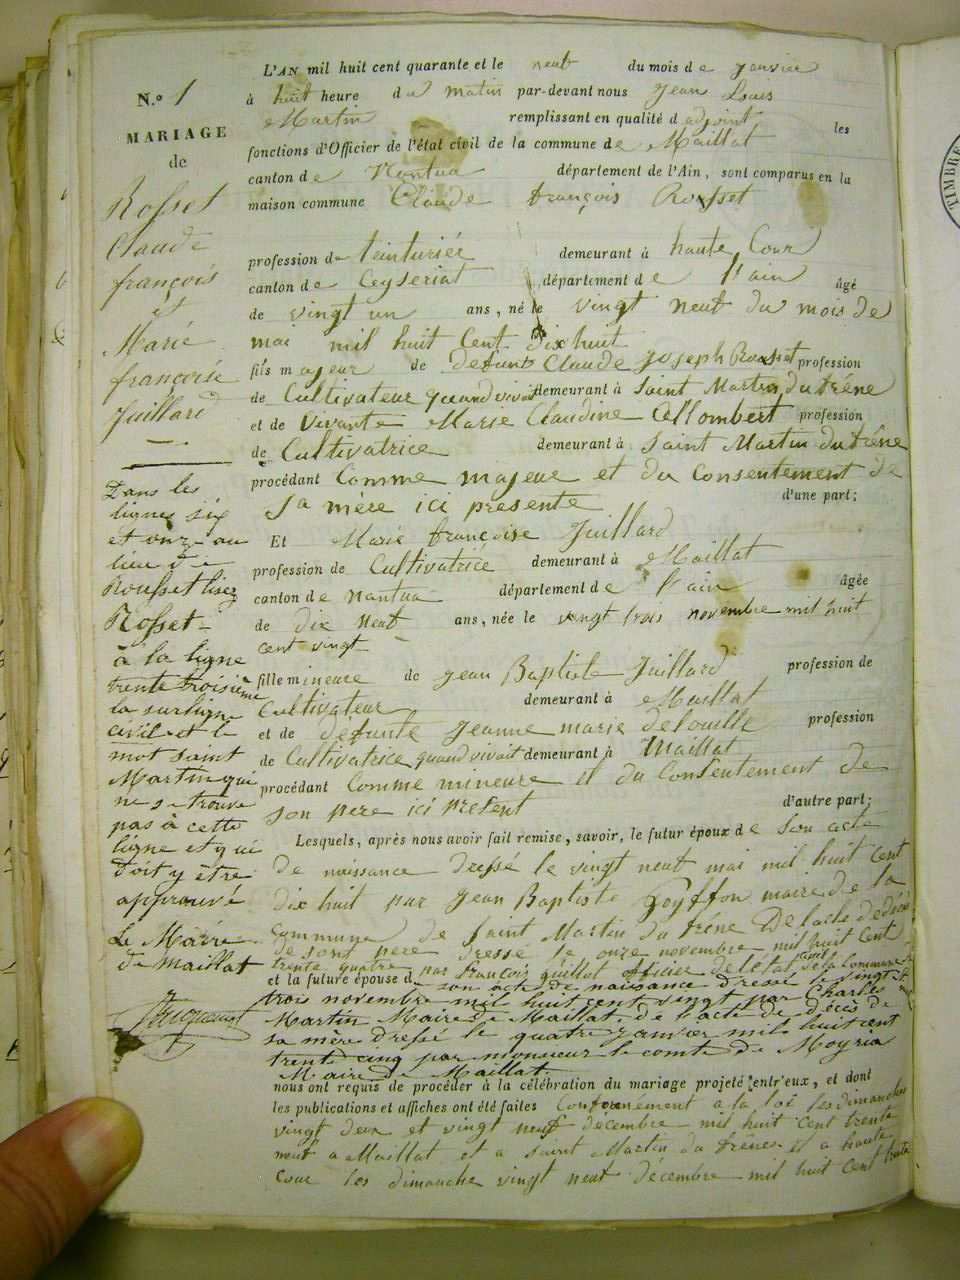 N.º 1
MARIAGE
de
Rosset
Claude
françois
et
Marie
françoise
Juillard
Dans les
lignes six
et onze au
lieu de
Rousset lisez
Rosset
à la ligne
trente troisième
la surligne
civil et le
mot saint
Martin qui
ne se trouve
pas à cette
ligne et qui
doit y être
approuvé
Le Maire
de Maillat
L'AN mil huit cent quarante et le neuf du mois de janvier
à huit heure du matin par-devant nous Jean Louis
Martin remplissant en qualité d adjoint les
fonctions d'Officier de l'état civil de la commune de Maillat
canton de Nantua département de l'Ain, sont comparus en la
maison commune Claude françois Rousset
profession de teinturiée demeurant à haute Cour
canton de Ceyseriat département de l'ain âgé
de vingt un ans, né le vingt neuf du mois de
mai mil huit Cent dix huit
fils majeur de defunt Claude Joseph Rousset profession
de Cultivateur quand vivait demeurant à Saint Martin du frêne
et de Vivante Marie Claudine Collombert profession
de Cultivatrice demeurant à Saint Martin du frêne
procédant Comme majeur et du Consentement de
Sa mère ici presente d'une part;
Et Marie françoise Juillard
profession de Cultivatrice demeurant à Maillat
canton de nantua département de l'ain âgée
de dix neuf ans, née le vingt trois novembre mil huit
cent vingt
fille mineure de Jean Baptiste Juillard profession de
Cultivateur demeurant à Maillat
et de défunte Jeanne marie delouille profession
de Cultivatrice quand vivait demeurant à Maillat
procédant Comme mineure et du Consentement de
son pere ici present d'autre part;
Lesquels, après nous avoir fait remise, savoir, le futur époux de Son acte
de naissance dressé le vingt neuf mai mil huit cent
dix huit par Jean Baptiste maire de la
Commune de saint Martin du frêne De l'acte de décès
de sont pere dressé le onze novembre mil huit Cent
trente quatre par françois guillot officier de l'état civil de la Commune
et la future épouse d son acte de naissance dressé le vingt
trois novembre mil huit cent vingt par Charles
Martin Maire de Maillat. de l'acte de décès de
sa mère dressé le quatre janvier mil huit cent
trente cinq par monsieur le comte de Moyria
Maire de Maillat.
nous ont requis de procéder à la célébration du mariage projeté entr'eux, et dont
les publications et affiches ont été faites Conformément a la loi les dimanches
vingt deux et vingt neuf décembre mil huit Cent trente
neuf a Maillat et a saint Martin du frêne et a haute
Cour les dimanche vingt neuf décembre mil huit Cent trente
TIMBRE